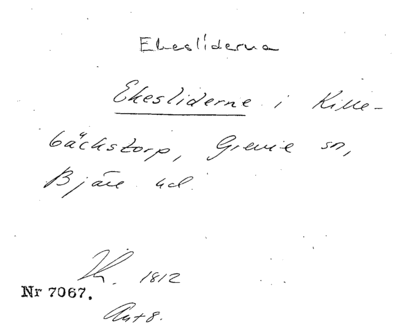 Ekesliderna
Ekesliderne i Kille-
bäckstorp, Grevie sn,
Bjäre hd.
1812
Nr 7067.
Akt 8.